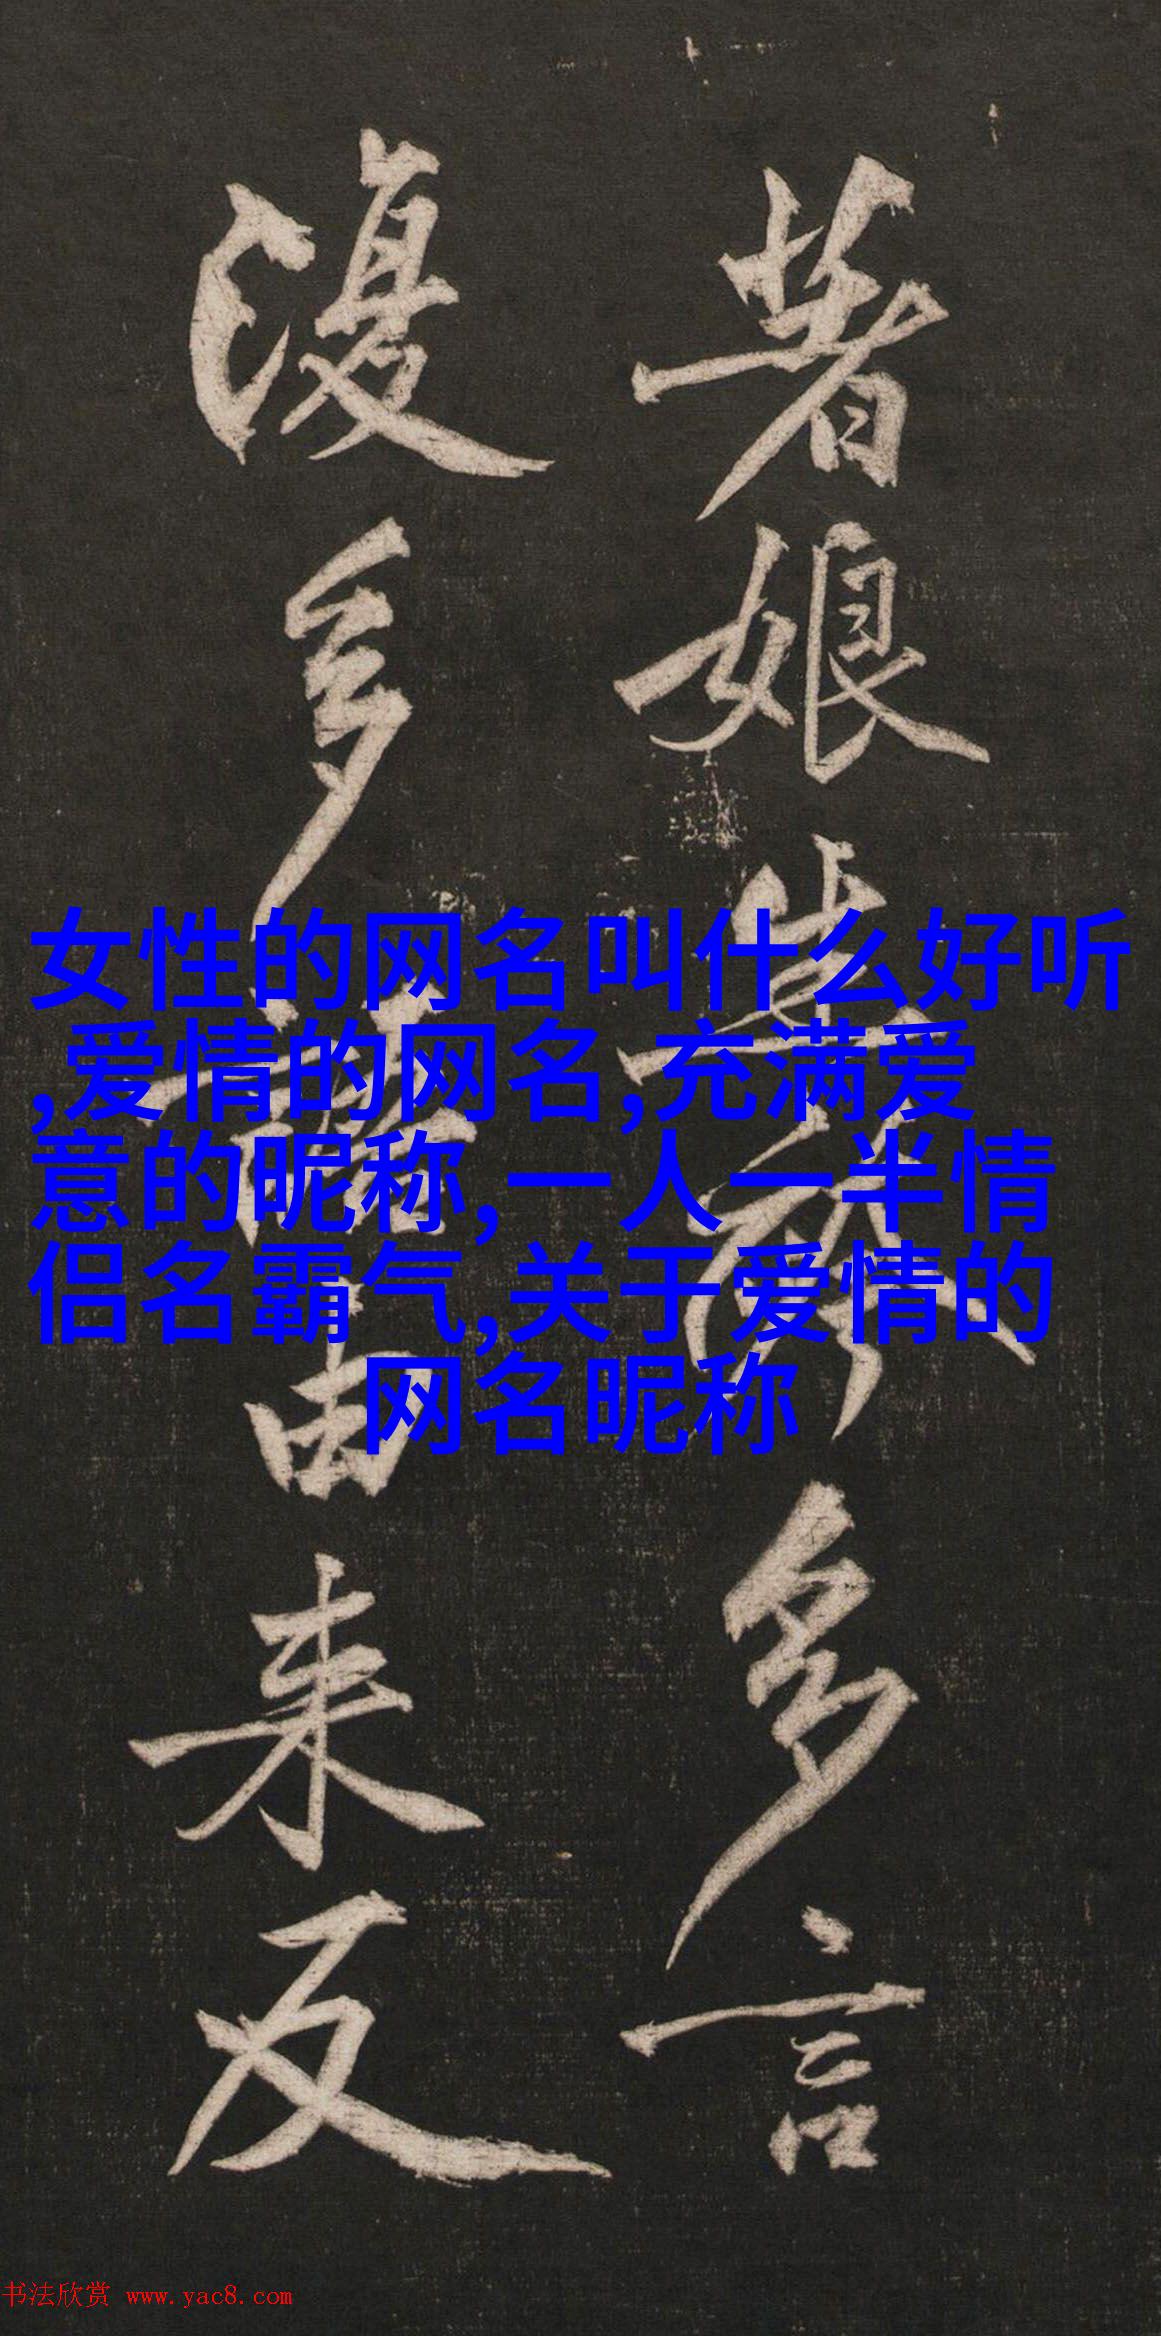 著娘多言
多由来反
女性的网名叫什么好听
,爱情的网名,充满爱
意的昵称,一人一半情
侣名霸气,关于爱情的
网名昵称
书法欣赏 www.yac8.com